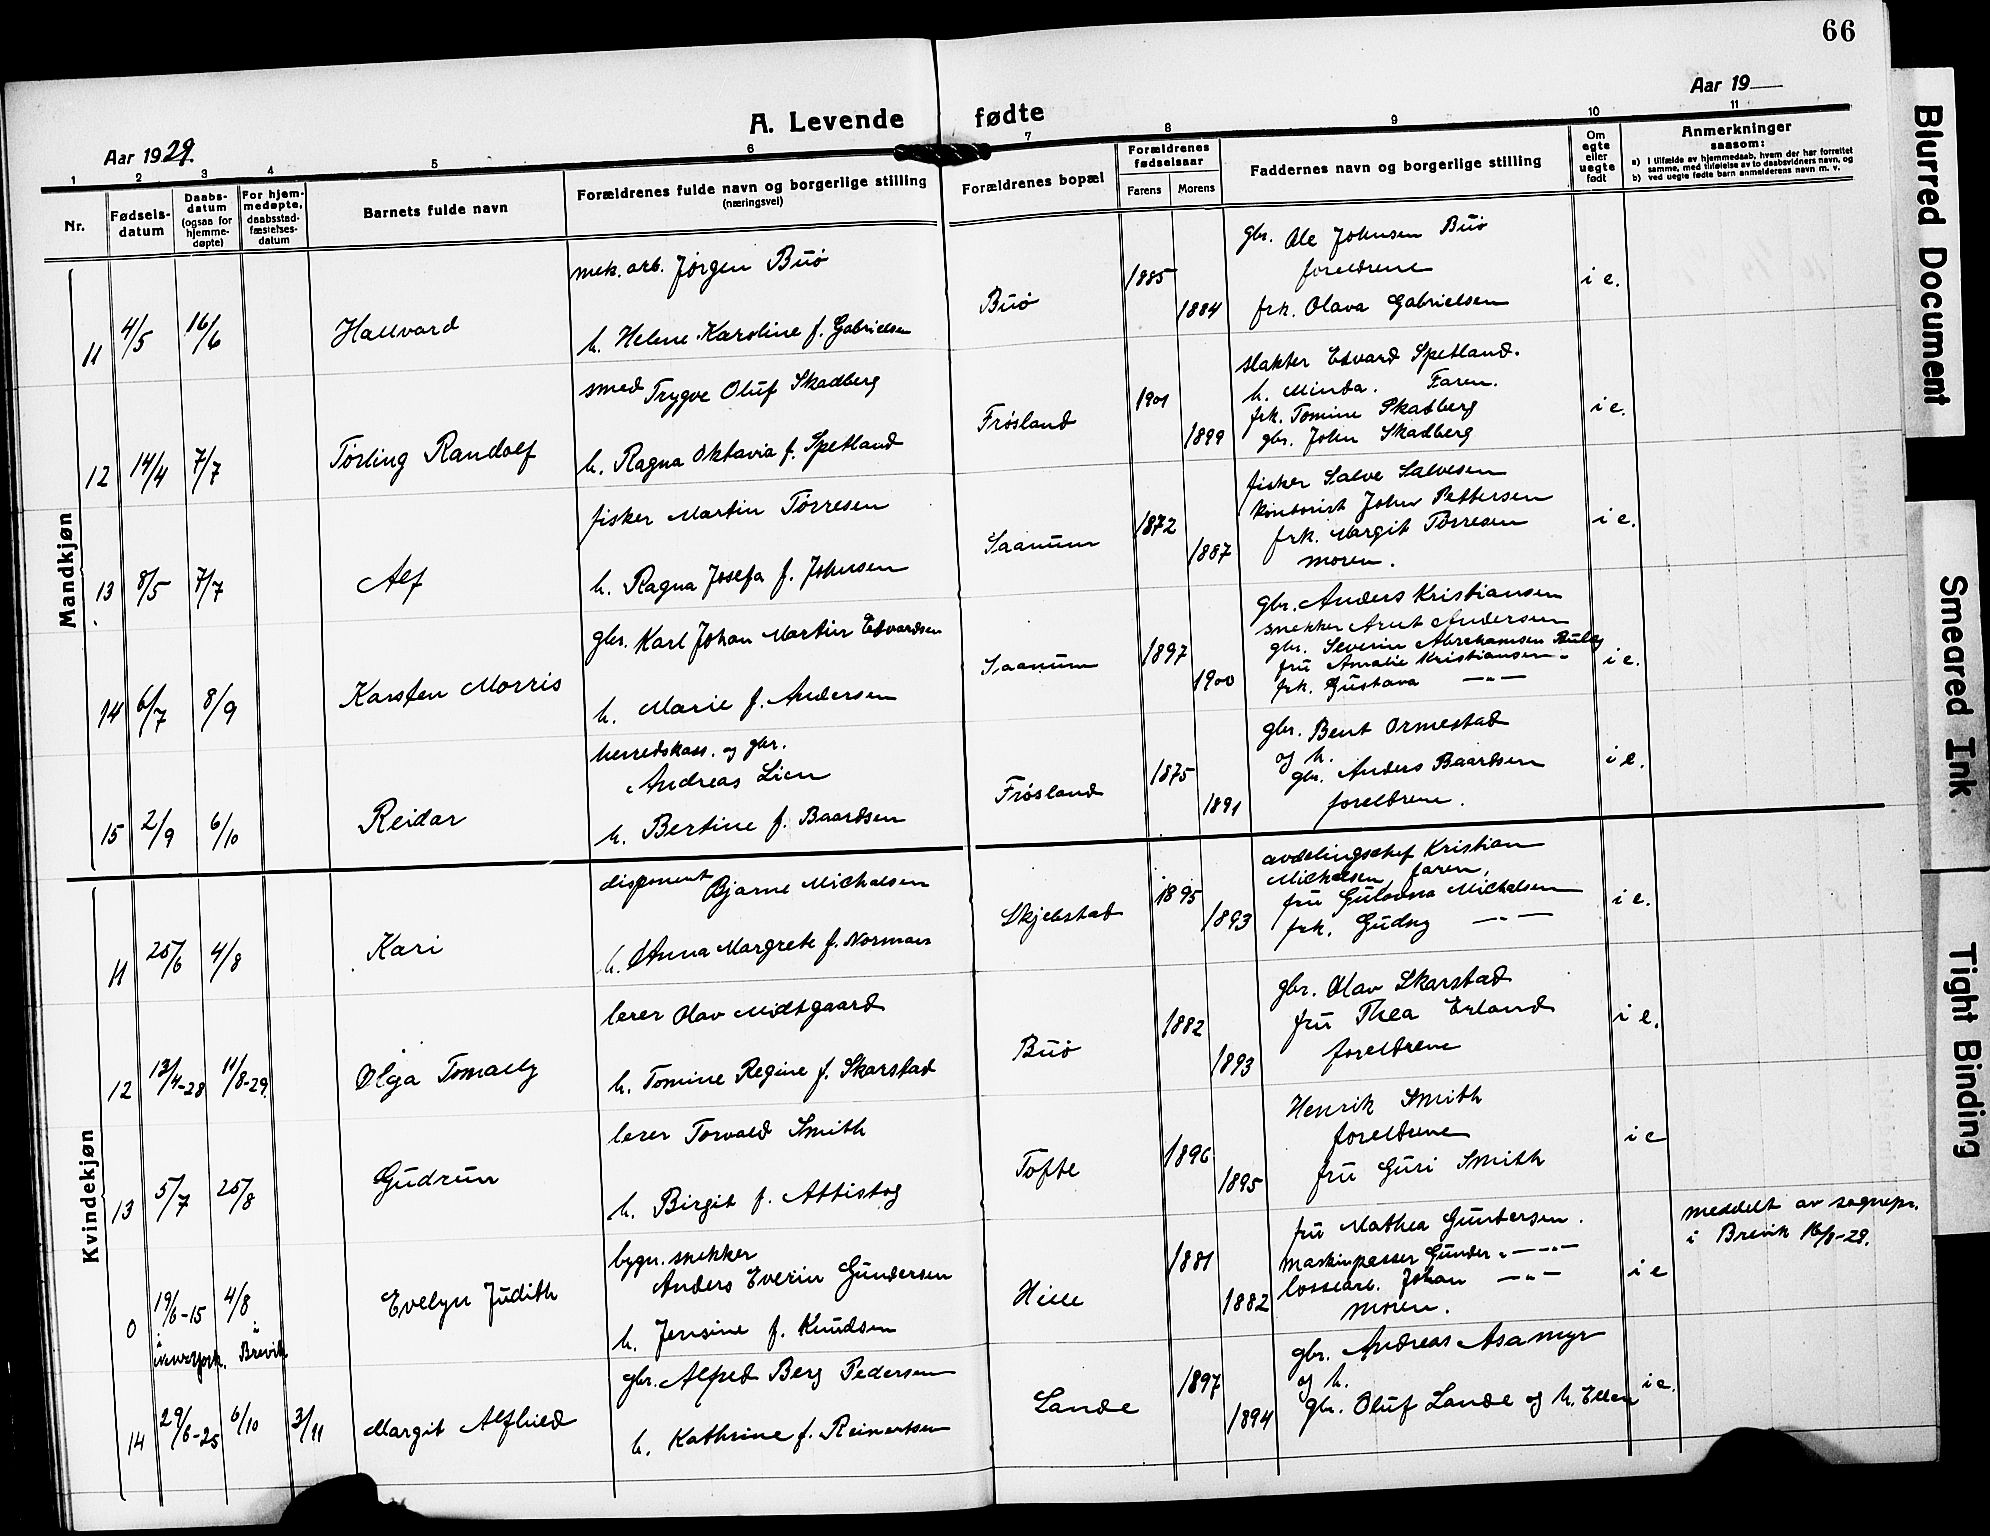 66
Aar 1929.
A. Levende fødte
Aar 19
1 2 3 4 5 6 7 8 9 10 11
Nr.
Fødselsdatum
Daabsdatum (ogsaa for hjemmedøpte)
For hjemmedøpte, daabsstadfæstelsesdatum
Barnets fulde navn
Forældrenes fulde navn og borgerlige stilling (næringsvei)
Forældrenes bopæl
Forældrenes fødselsaar
Farens Morens
Faddernes navn og borgerlige stilling
Om egte eller uegte født
Anmerkninger saasom:
a) i tilfælde av hjemmedaab, hvem der har forrettet samme, med tilføielse av to daabsvidners navn, og
b) ved uegte fødte barn anmelderens navn m. v.
Mandkjøn
11 4/5 16/6 Hallvard
mek. arb. Jørgen Buø
h. Helene Karoline f. Gabrielsen
Buø 1885 1884
gbr. Ole Johnsen Buø
foreldrene
frk. Olava Gabrielsen
i e.
12 14/4 7/7 Tørling Randolf
smed Trygve Oluf Skadberg
h. Ragna Oktavia f. Spetland
Frøsland 1901 1899
slakter Edvard Spetland.
h. Minda. Faren.
frk. Tomine Skadberg
gbr. John Skadberg
i e.
13 8/5 7/7 Alf
fisker Martin Tørresen
h. Ragna Josefa f. Johnsen
Saanum 1872 1887
fisker Salve Salvesen
kontorist John Pettersen
frk. Margit Tørresen
moren.
i e.
14 6/7 8/9 Karsten Morris
gbr. Karl Johan Martin Edvardsen
h. Marie f. Andersen
Saanum 1897 1900
gbr. Anders Kristiansen
snekker Arnt Andersen
gbr. Severin Abrahamsen
fru Amalie Kristiansen
frk. Gustava —"—
i e.
15 2/9 6/10 Reidar
herredskass. og gbr.
Andreas Lien
h. Bertine f. Baardsen
Frøsland 1875 1891
gbr. Bent Ormestad
og h.
gbr. Anders Baardsen
foreldrene.
i e.
Kvindekjøn
11 25/6 4/8 Kari
disponent Bjarne Michalsen
h. Anna Margrete f. Norman
Skjebstad 1895 1893
avdelingschef Kristian
Michalsen, faren,
fru Gulovna Michalsen
frk. Gudny —"—
i e.
12 13/4-28 11/8-29. Olga Tomally
lerer Olav Midtgaard
h. Tomine Regine f. Skarstad
Buø 1882 1893
gbr. Olav Skarstad
fru Thea Erland
foreldrene
i e.
13 5/7 25/8 Gudrun
lerer Torvald Smith
h. Birgit f. Attistog
Tofte 1896 1895
Henrik Smith
foreldrene
fru Guri Smith
i e
0 19/6-15 4/8 Evelyn Judith
i New York. i Brevik
bygn. snekker
Anders Everin Gundersen
h. Jensine f. Knudsen
Hille 1881 1882
fru Mathea Gundersen.
maskinpasser Gunder —"—
lossearb. Johan —"—
moren.
i e
meddelt av sognepr.
i Brevik
14 29/6-25 6/10 3/11 Margit Alfhild
gbr. Alfred Berg Pedersen
h. Kathrine f. Reinertsen
Lande 1897 1894
gbr. Andreas Asamyr
og h.
gbr. Oluf Lande og h. Ellen
i e.
Blurred Document
Smeared Ink
Tight Binding